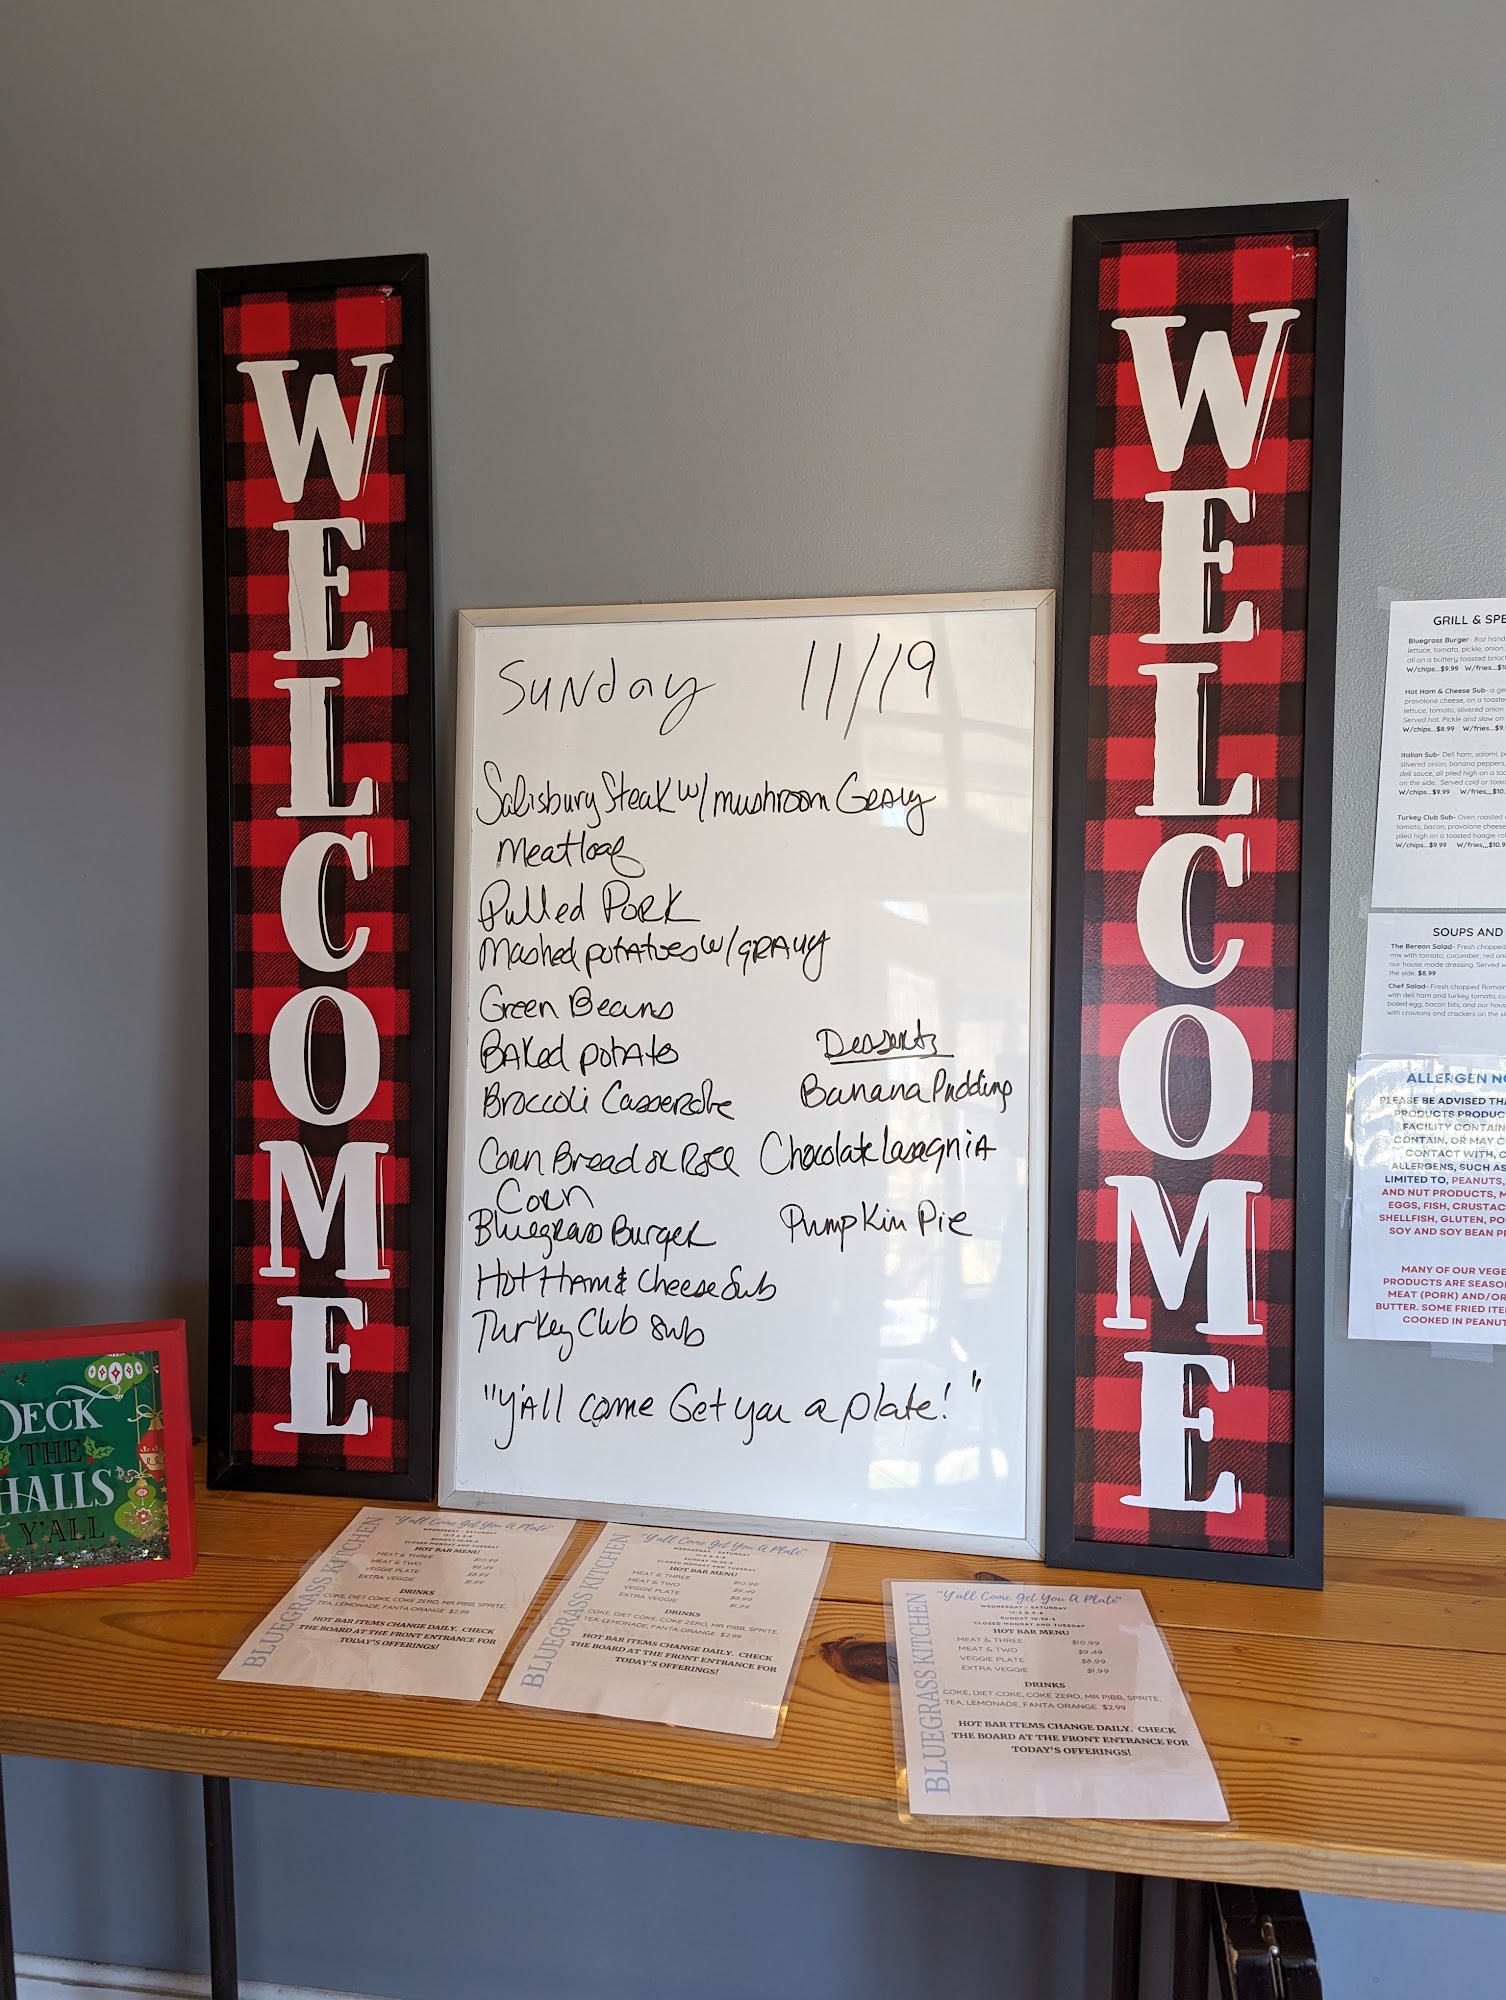 WELCOME
WELCOME
Sunday 11/19
Salisbury Steak w/ mushroom Gravy
Meatloaf
Pulled Pork
Mashed potatoes w/ gravy
Green Beans
Baked potato
Broccoli Casserole
Corn Bread or Roll
Corn
Bluegrass Burger
Hot Ham & Cheese Sub
Turkey Club Sub
Desserts
Banana Pudding
Chocolate Lasagnia
Pumpkin Pie
"Y'all come Get you a plate!"
DECK
THE
HALLS
Y'ALL
BLUEGRASS KITCHEN
"Y'all Come Get You A Plate"
WEDNESDAY - SATURDAY
11-2 & 5-8
SUNDAY 10:30-3
CLOSED MONDAY AND TUESDAY
HOT BAR MENU
MEAT & THREE $10.99
MEAT & TWO $9.49
VEGGIE PLATE $8.99
EXTRA VEGGIE $1.99
DRINKS
COKE, DIET COKE, COKE ZERO, MR PIBB, SPRITE,
TEA, LEMONADE, FANTA ORANGE $2.99
HOT BAR ITEMS CHANGE DAILY. CHECK
THE BOARD AT THE FRONT ENTRANCE FOR
TODAY'S OFFERINGS!
BLUEGRASS KITCHEN
"Y'all Come Get You A Plate"
WEDNESDAY - SATURDAY
11-2 & 5-8
SUNDAY 10:30-3
CLOSED MONDAY AND TUESDAY
HOT BAR MENU
MEAT & THREE $10.99
MEAT & TWO $9.49
VEGGIE PLATE $8.99
EXTRA VEGGIE $1.99
DRINKS
COKE, DIET COKE, COKE ZERO, MR PIBB, SPRITE,
TEA, LEMONADE, FANTA ORANGE $2.99
HOT BAR ITEMS CHANGE DAILY. CHECK
THE BOARD AT THE FRONT ENTRANCE FOR
TODAY'S OFFERINGS!
BLUEGRASS KITCHEN
"Y'all Come Get You A Plate"
WEDNESDAY - SATURDAY
11-2 & 5-8
SUNDAY 10:30-3
CLOSED MONDAY AND TUESDAY
HOT BAR MENU
MEAT & THREE $10.99
MEAT & TWO $9.49
VEGGIE PLATE $8.99
EXTRA VEGGIE $1.99
DRINKS
COKE, DIET COKE, COKE ZERO, MR PIBB, SPRITE,
TEA, LEMONADE, FANTA ORANGE $2.99
HOT BAR ITEMS CHANGE DAILY. CHECK
THE BOARD AT THE FRONT ENTRANCE FOR
TODAY'S OFFERINGS!
GRILL &
Bluegrass Burger- 8oz hand
lettuce, tomato, pickle, onion,
all on a buttery toasted
W/chips...$9.99 W/fries...
Hot Ham & Cheese Sub- a
provolone cheese, on a toasted
lettuce, tomato, slivered onion
Served hot. Pickle and slaw on
W/chips...$8.99 W/fries...
Italian Sub- Deli ham, salami,
slivered onion, banana peppers,
deli sauce, all piled high on a
on the side. Served cold or
W/chips...$9.99 W/fries...
Turkey Club Sub- Oven roasted
tomato, bacon, provolone cheese
piled high on a toasted hoagie
W/chips...$9.99 W/fries...
SOUPS AND
The Berean Salad- Fresh chopped
mix with tomato, cucumber, red
our house made dressing. Served
the side. $8.99
Chef Salad- Fresh chopped
with deli ham and turkey tomato,
boiled egg, bacon bits, and our
with croutons and crackers on the
ALLERGEN
PLEASE BE ADVISED
PRODUCTS
FACILITY
CONTAIN, OR MAY
CONTACT WITH,
ALLERGENS, SUCH AS
LIMITED TO, PEANUTS,
AND NUT PRODUCTS,
EGGS, FISH,
SHELLFISH, GLUTEN,
SOY AND SOY BEAN
MANY OF OUR
PRODUCTS ARE
MEAT (PORK) AND/OR
BUTTER. SOME FRIED
COOKED IN